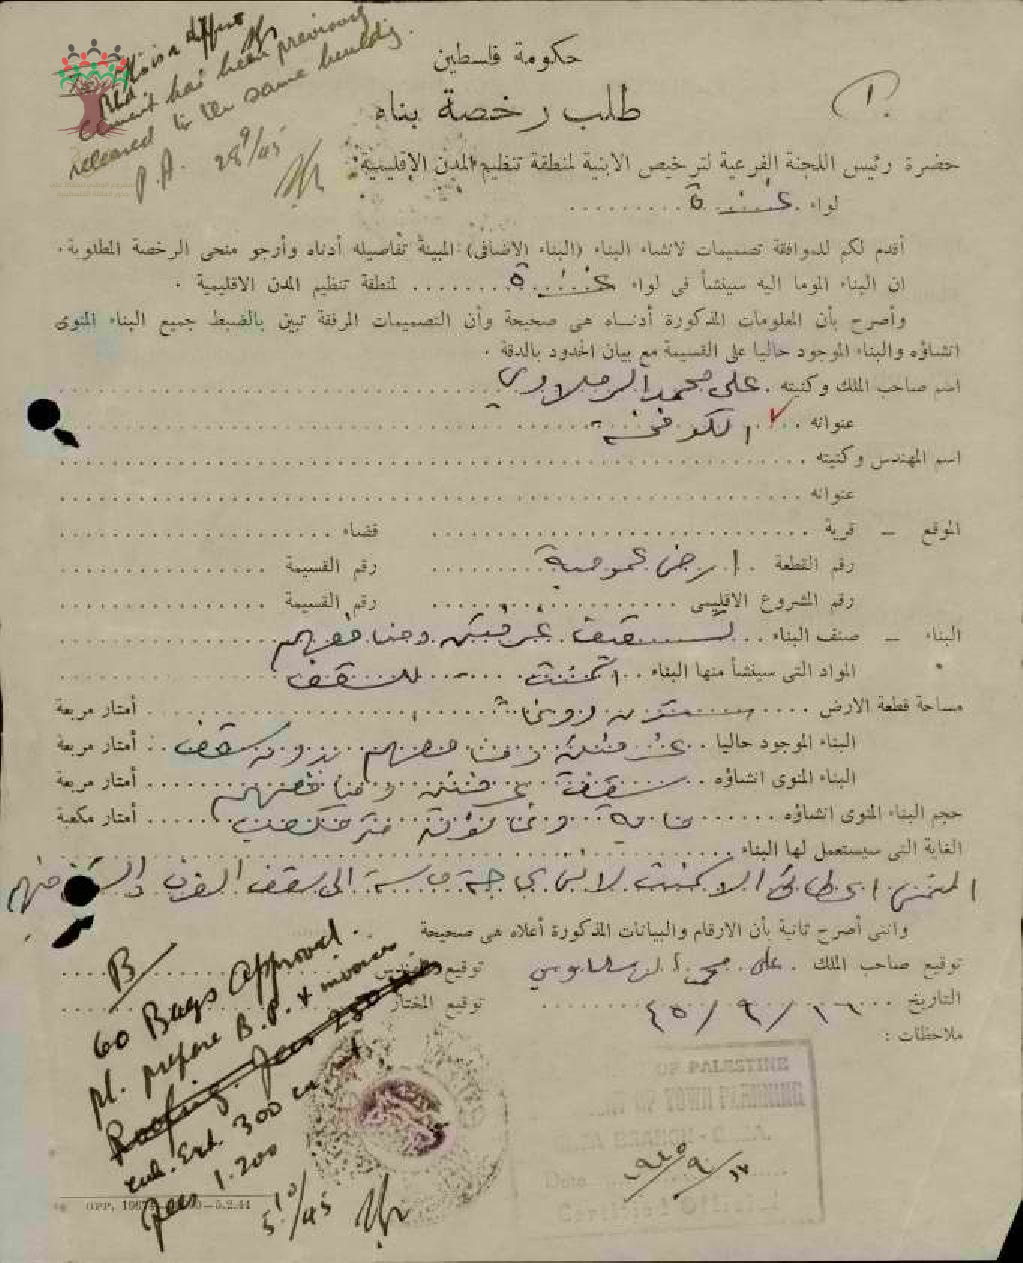 This is a different
cement has been previously
released to the same building.
P.A. 28/9/45
حكومة فلسطين
طلب رخصة بناء
١
حضرة رئيس اللجنة الفرعية لترخيص الابنية لمنطقة تنظيم المدن الاقليمية
لواء غزة
أقدم لكم للموافقة تصميمات لانشاء البناء (البناء الاضافى) المبينة تفاصيله أدناه وأرجو منحى الرخصة المطلوبة.
ان البناء الموما اليه سينشأ فى لواء غزة لمنطقة تنظيم المدن الاقليمية.
وأصرح بأن المعلومات المذكورة أدناه هى صحيحة وأن التصميمات المرفقة تبين بالضبط جميع البناء المنوى
انشاؤه والبناء الموجود حاليا على القسيمة مع بيان الحدود بالدقة.
اسم صاحب الملك وكنيته على محمد الرملاوى
عنوانه الكوفخة
اسم المهندس وكنيته
عنوانه
الموقع – قرية قضاء
رقم القطعة ارض عمومية رقم القسيمة
رقم المشروع الاقليمى رقم القسيمة
البناء – صنف البناء تسقيف غرفتين ومنافعهم
المواد التى سينشأ منها البناء اسمنت للسقف
مساحة قطعة الارض أمتار مربعة
البناء الموجود حاليا غرفتين ومنافعهم بدون سقف أمتار مربعة
البناء المنوى انشاؤه سقف غرفتين ومنافعهم أمتار مربعة
حجم البناء المنوى انشاؤه أمتار مكعبة
الغاية التى سيستعمل لها البناء
الاسمنت لانى بحاجة ماسة الى سقف الغرف
وانى أصرح ثانية بأن الارقام والبيانات المذكورة أعلاه هى صحيحة
توقيع صاحب الملك على محمد توقيع المهندس
التاريخ ١٦/٩/٤٥ توقيع المختار
ملاحظات :
B
60 Bags Approved.
pl. prepare B.P. & invoice
Roofing. fees 250
cub. Ext. 300 cu mt.
fees 1.200
5/10/45
OF PALESTINE
OF TOWN PLANNING
GAZA BRANCH - GAZA.
Date ١٧/٩/١٩٤٥
Certified Official
GPP, 5.2.44